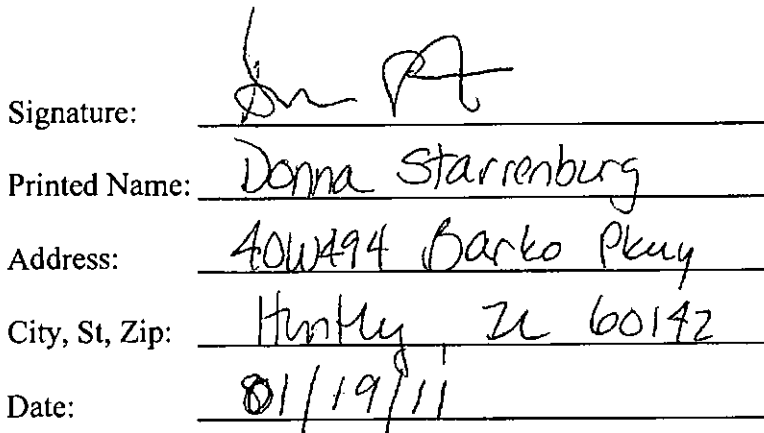 Signature:
Printed Name: Donna Starrenburg
Address: 40W494 Barko Pkwy
City, St, Zip: Huntley, IL 60142
Date: 01/19/11